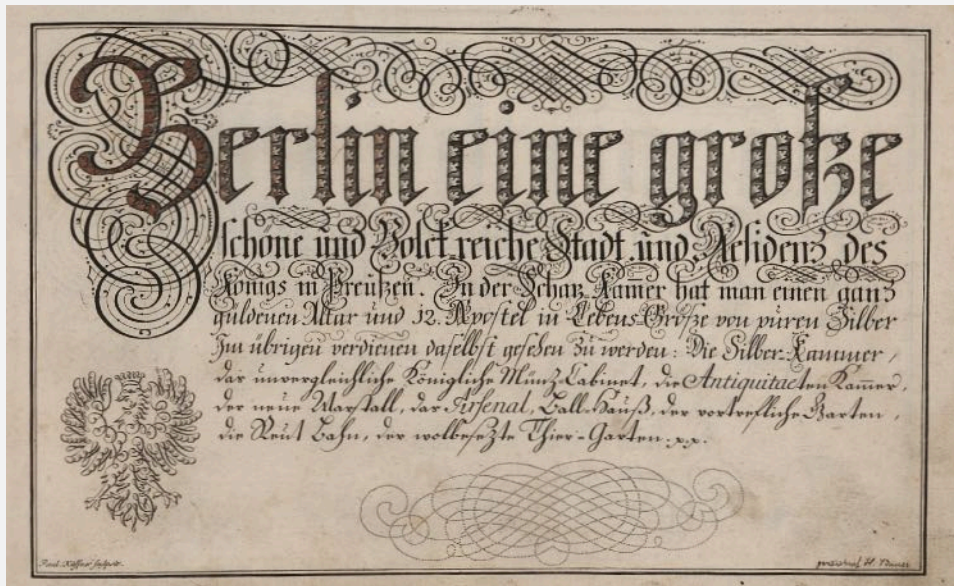 Berlin eine große
schöne und Volckreiche Stadt und Residenz des
Königs in Preußen. In der Schaz Kamer hat man einen ganz
guldenen Altar und 12. Apostel in Lebens Größe von puren Silber
Im übrigen verdienen daselbst gesehen zu werden: Die Silber-Kammer,
das unvergleichliche Königliche Münz-Cabinet, die Antiquitaeten Kamer,
der neue Marstall, das Arsenal, Ball-Hauß, der vortrefliche Garten,
die Reut Bahn, der wolbesezte Thier-Garten.
sculpsit.